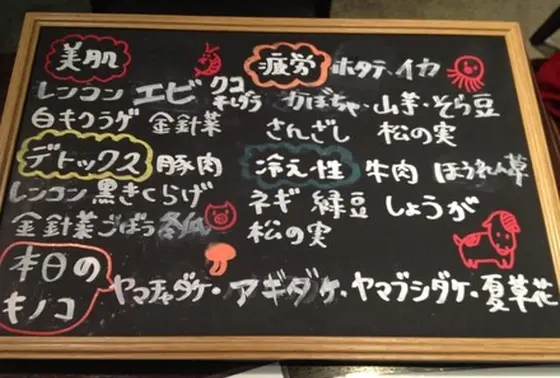 美肌
レンコン エビ クコ
白キクラゲ 金針菜
疲労 ホタテ・イカ
かぼちゃ・山芋・そら豆
さんざし 松の実
デトックス 豚肉
レンコン 黒きくらげ
金針菜 ごぼう 冬瓜
冷え性 牛肉 ほうれん草
ネギ 緑豆 しょうが
松の実
本日の
キノコ
ヤマチャダケ・アギダケ・ヤマブシダケ・夏草花